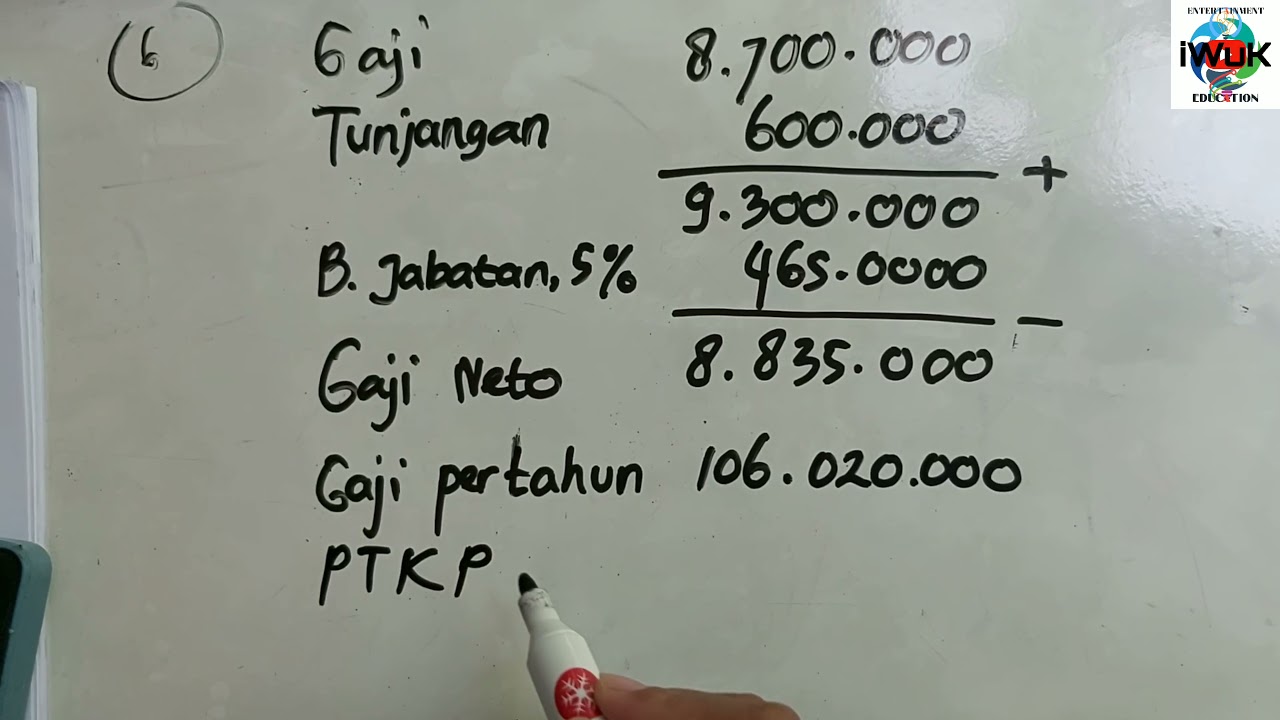 ENTERTAINMENT
iWUK
EDUCATION
6 Gaji 8.700.000
Tunjangan 600.000
+
9.300.000
B. Jabatan, 5% 465.0000
−
Gaji Neto 8.835.000
Gaji pertahun 106.020.000
PTKP